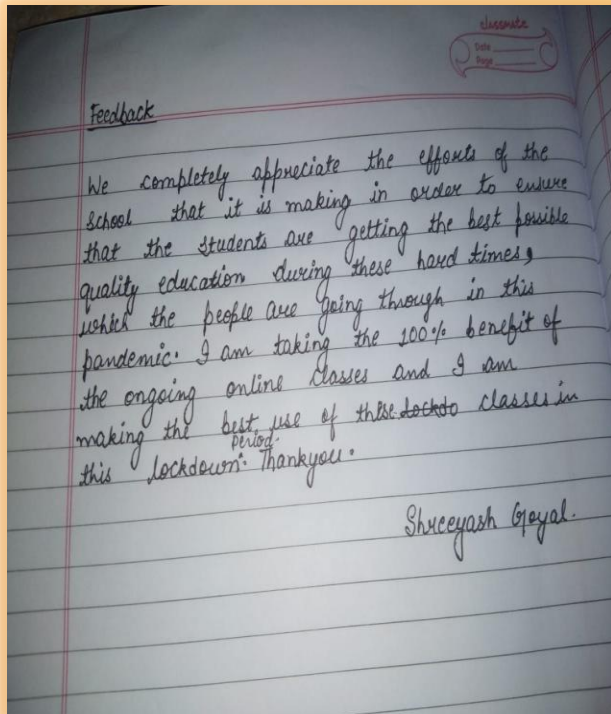 classmate
Date
Page
Feedback
We completely appreciate the efforts of the
school that it is making in order to ensure
that the students are getting the best possible
quality education during these hard times,
which the people are going through in this
pandemic. I am taking the 100% benefit of
the ongoing online classes and I am
making the best use of these lockdo classes in
period.
this lockdown. Thankyou.
Shreeyash Goyal.